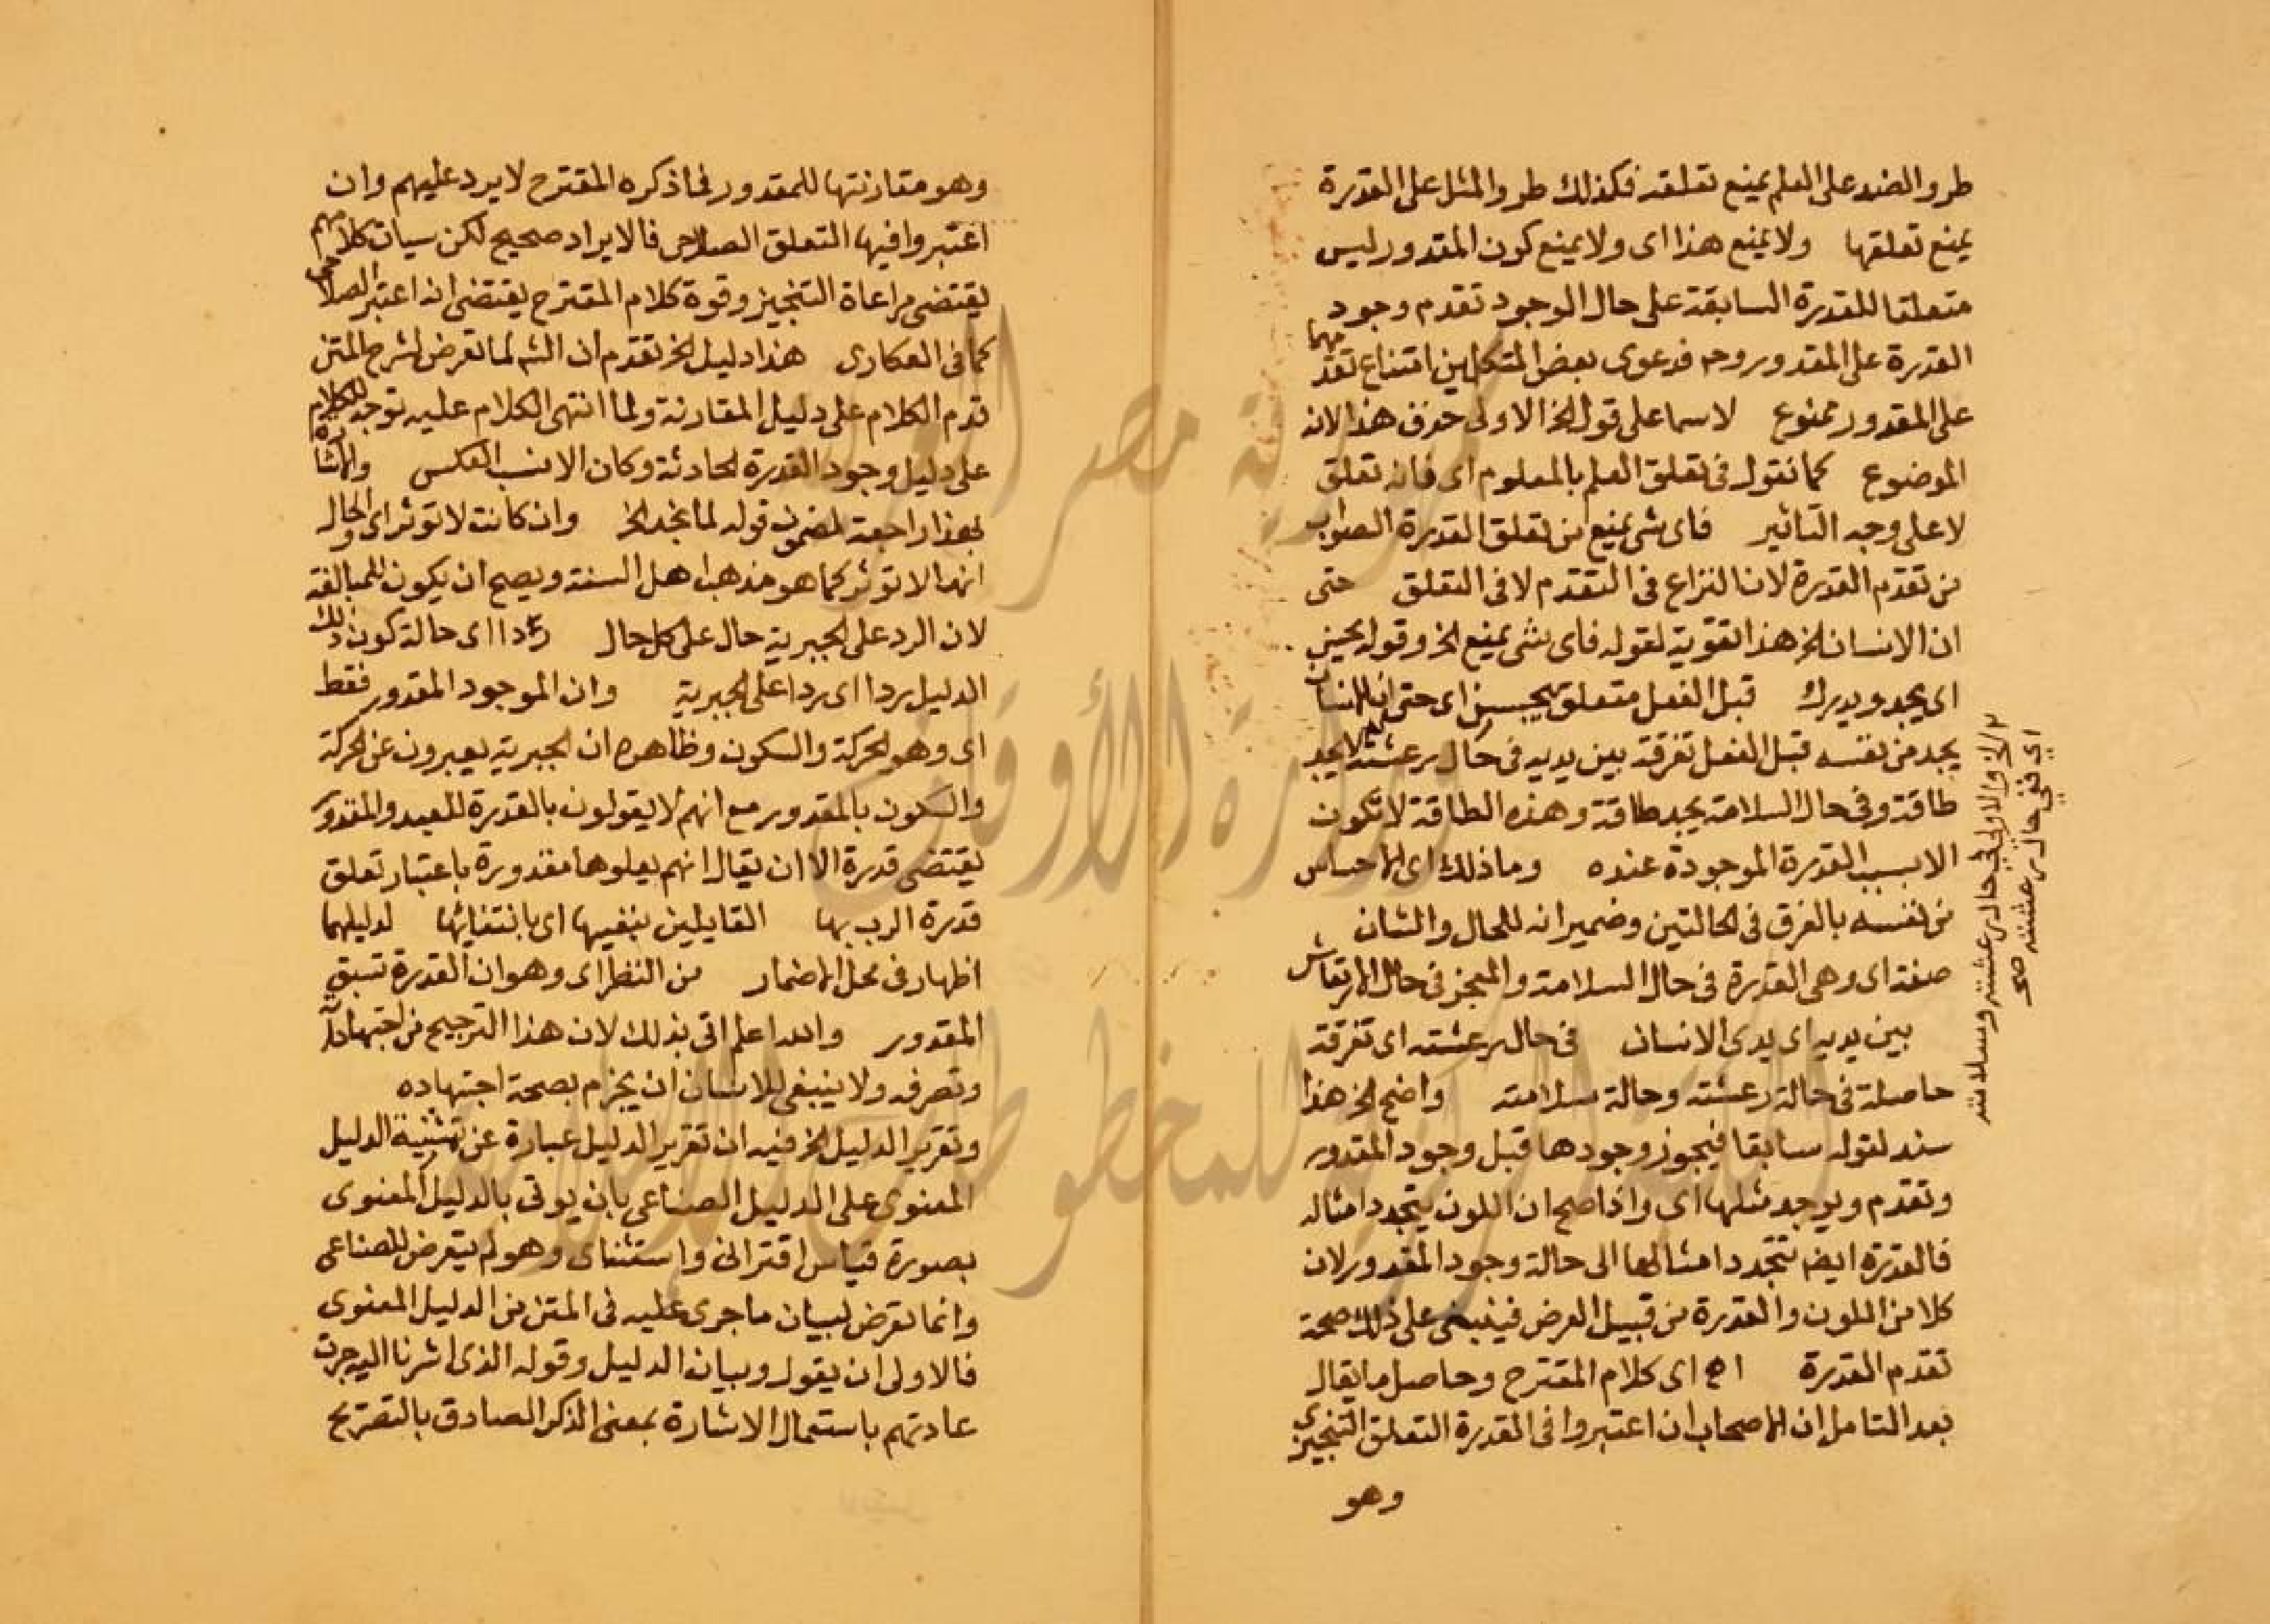 طرو الضد على العلم يمنع تعلقه فكذلك طرو المثل على القدرة
يمنع تعلقها ولا يمنع هذا اى ولا يمنع كون المقدور ليس
متعلقا للقدرة السابقة على حال الوجود تقدم وجود
القدرة على المقدور وح فدعوى بعض المتكلمين امتناع تقدمها
على المقدور ممنوع لاسما على قول الخ الاولى حذف هذا لانه
الموضوع كما نقول فى تعلق العلم بالمعلوم اى فانه تعلق
لا على وجه التاثير فاى شى يمنع من تعلق القدرة الصواب
من تقدم القدرة لان النزاع فى التقدم لا فى التعلق حتى
ان الانسان الخ هذا تقوية لقوله فاى شى يمنع الخ وقوله يحس
اى يجد ويدرك قبل الفعل متعلق بيحس اى حتى ان الانسان
يجد من نفسه قبل الفعل تفرقة بين يديه فى حال رعشته لا يجد
طاقة وفى حال السلامة يجد طاقة وهذه الطاقة لا تكون
الا بسبب القدرة الموجودة عنده وما ذلك اى الاحساس
من نفسه بالفرق فى الحالتين وضمير انه للحال والشان
صفة اى وهى القدرة فى حال السلامة والعجز فى حال الارتعاش
بين يديه اى يدى الانسان فى حال رعشته اى تفرقة
حاصلة فى حالة رعشته وحالة سلامته واضح الخ هذا
سند لقوله سابقا فيجوز وجودها قبل وجود المقدور
وتقدم ويوجد مثلها اى واذا صح ان اللون يتجدد امثاله
فالقدرة ايضا تتجدد امثالها الى حالة وجود المقدور لان
كلا من اللون والقدرة من قبيل العرض فينبنى على ذلك صحة
تقدم القدرة اه اى كلام المقترح وحاصل ما يقال
بعد التامل ان الاصحاب ان اعتبروا فى القدرة التعلق التنجيزى
وهو
الخ والاولى فى حال رعشته وسلامته
اى ففى حال رعشته صح
وهو مقارنتها للمقدور فما ذكره المقترح لا يرد عليهم وان
اعتبروا فيها التعلق الصلاحى فالايراد صحيح لكن سياق كلامهم
يقتضى مراعاة التنجيز وقوة كلام المقترح يقتضى انه اعتبر الصلاحى
كما فى العكارى هذا دليل الخ تقدم ان الشه لما تعرض لشرح المتن
قدم الكلام على دليل المقارنة ولما انتهى الكلام عليه توجه للكلام
على دليل وجود القدرة الحادثة وكان الانسب العكس والاشارة
بهذا راجعة لمضمون قوله لما نجد الخ وان كانت لا توثر اى والحال
انها لا توثر كما هو مذهب اهل السنة ويصح ان يكون للمبالغة
لان الرد على الجبرية حال على كل حال ردا اى حالة كون ذلك
الدليل يردا اى ردا على الجبرية وان الموجود المقدور فقط
اى وهو الحركة والسكون وظاهره ان الجبرية يعبرون عن الحركة
والسكون بالمقدور مع انهم لا يقولون بالقدرة للعبد والمقدور
يقتضى قدرة الا ان يقال انهم يعلوها مقدورة باعتبار تعلق
قدرة الرب بها القايلين بنفيها اى بانتفائها لدليلهما
اظهار فى محل الاضمار من النظر اى وهو ان القدرة تسبق
المقدور والله اعلم اتى بذلك لان هذا الترجيح من اجتهاداته
وتصرفه ولا ينبغى للانسان ان يجزم بصحة اجتهاده
وتقرير الدليل الخ فيه ان تقرير الدليل عبارة عن تمشية الدليل
المعنوى على الدليل الصناعى بان يوتى بالدليل المعنوى
بصورة قياس اقترانى واستثناى وهو لم يتعرض للصناعى
وانما تعرض لبيان ما جرى عليه فى المتن من الدليل المعنوى
فالاولى ان يقول وبيان الدليل وقوله الذى اشرنا اليه جرت
عادتهم باستعمال الاشارة بمعنى الذكر الصادق بالتصريح